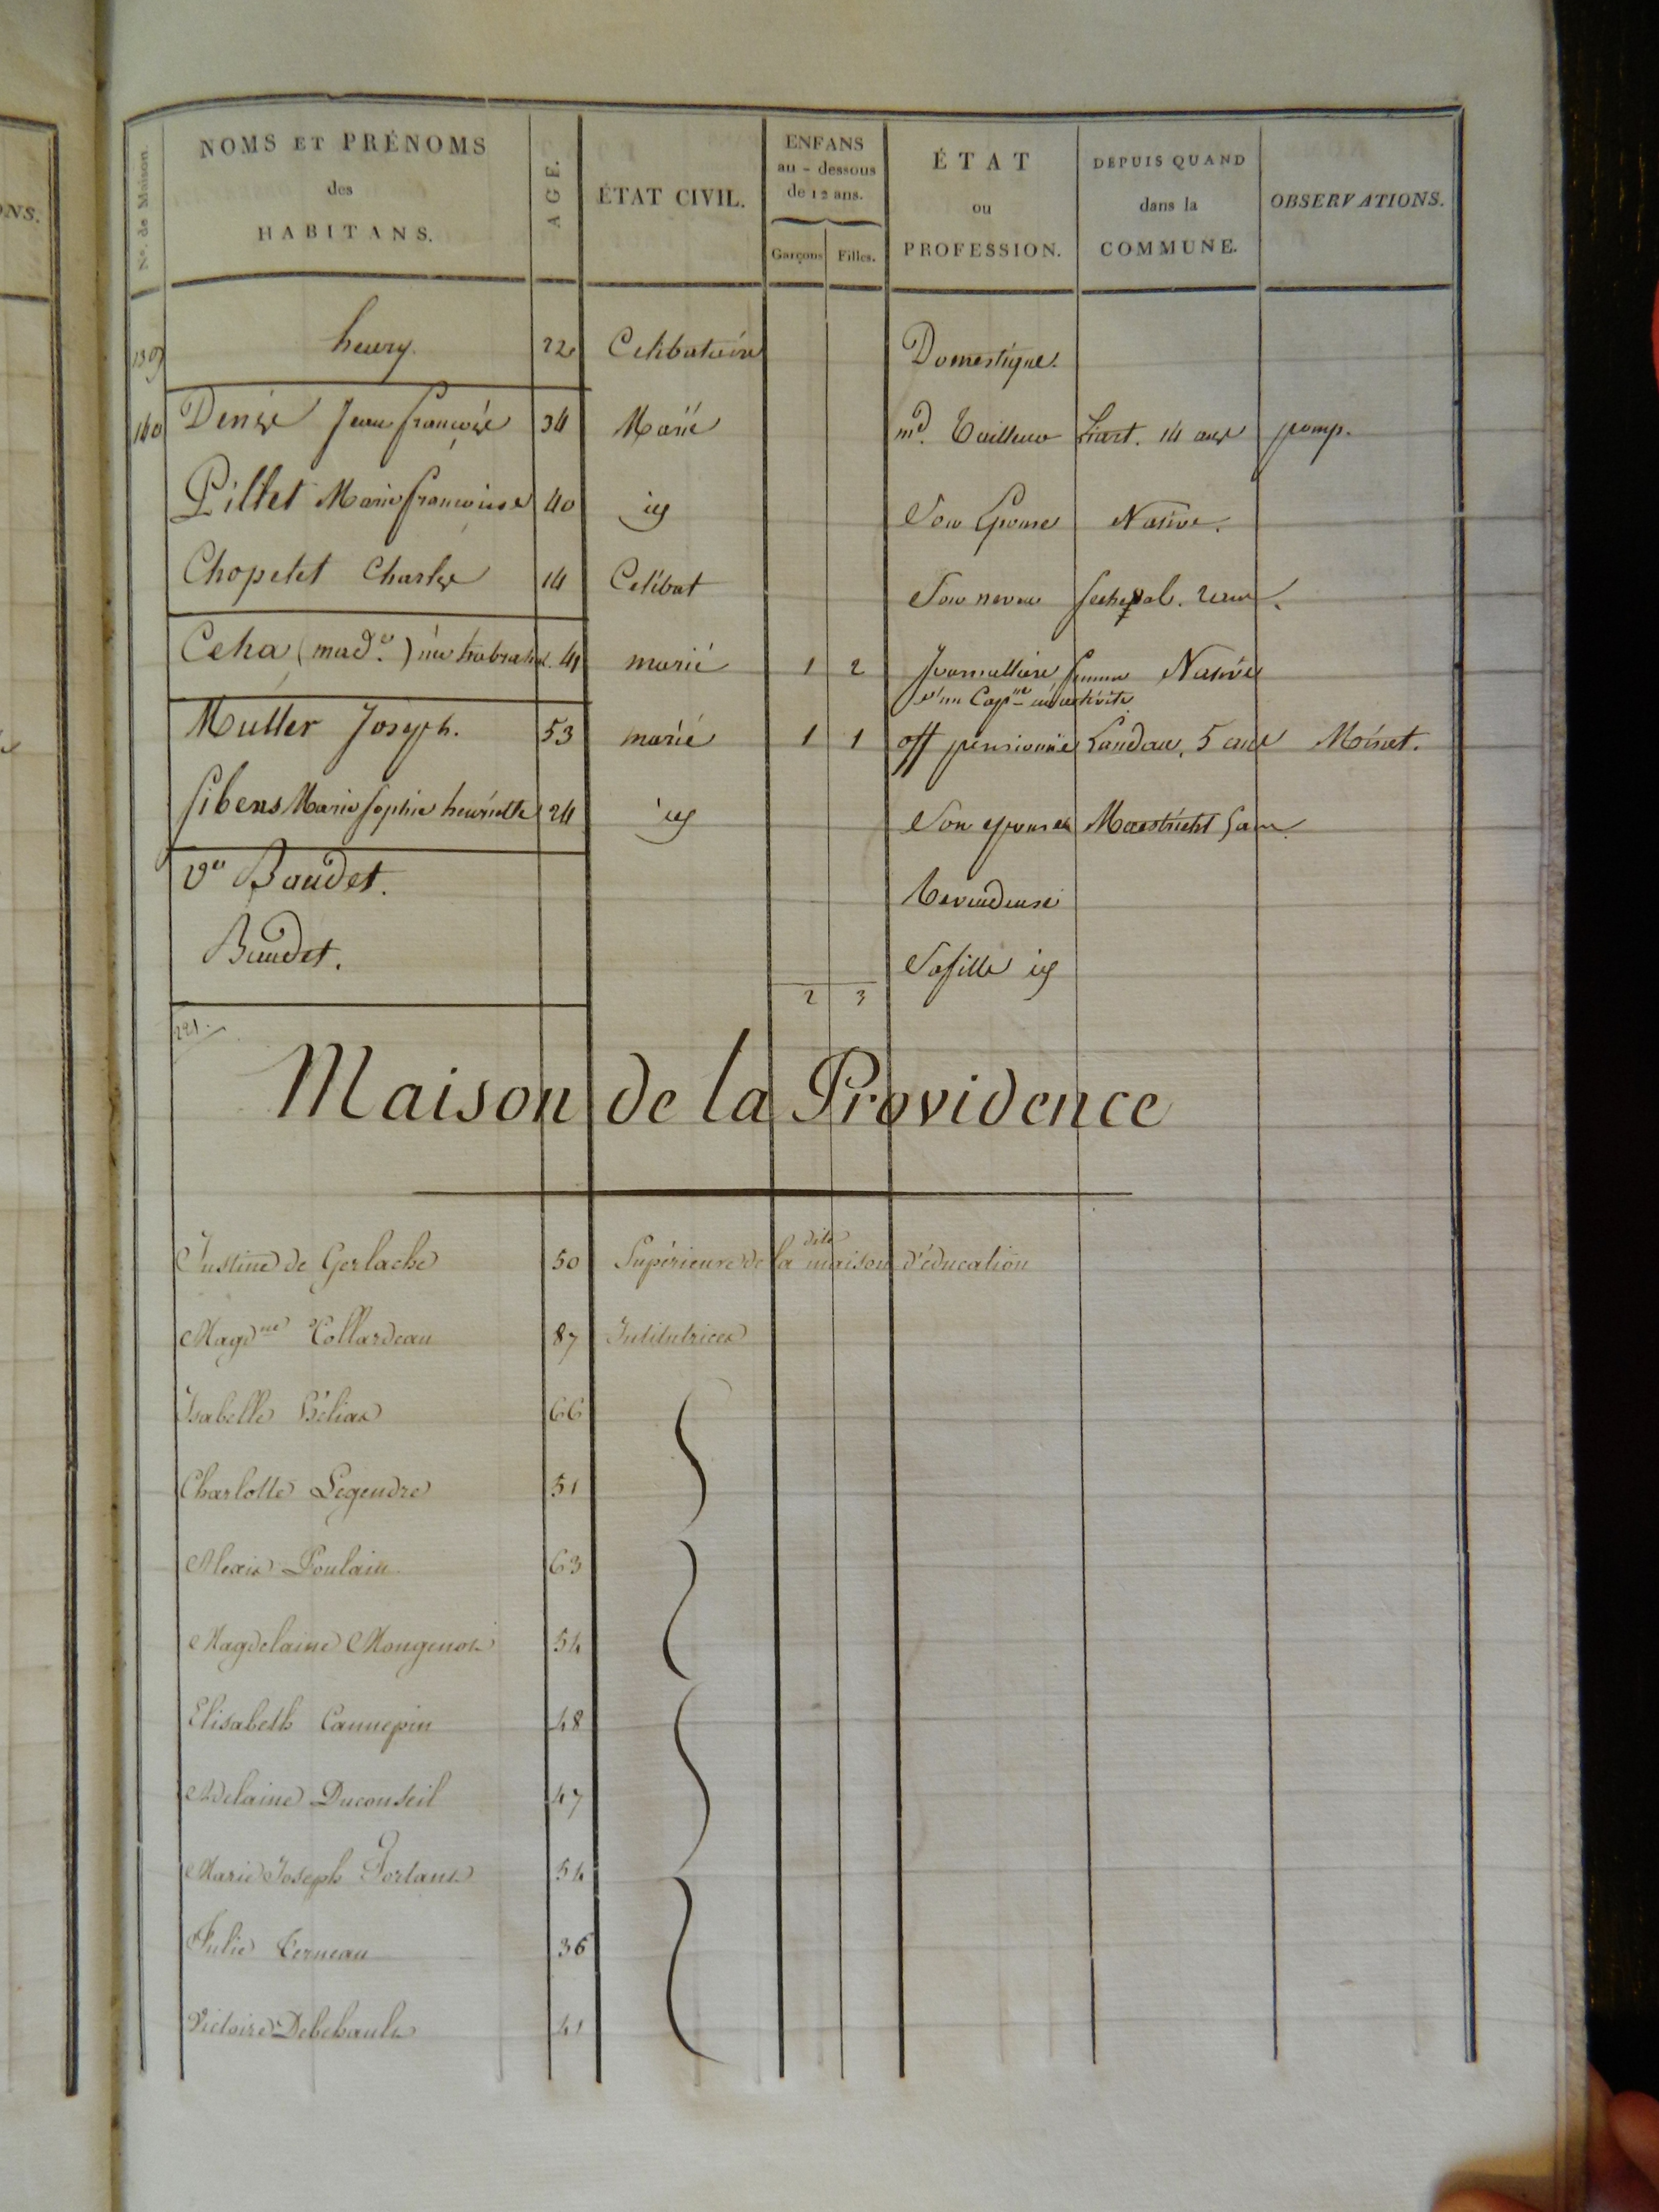 NS.
N°. de Maison.
NOMS ET PRÉNOMS
des
HABITANS.
AGE.
ÉTAT CIVIL.
ENFANS
au-dessous
de 12 ans.
Garçons Filles.
ÉTAT
ou
PROFESSION.
DEPUIS QUAND
dans la
COMMUNE.
OBSERVATIONS.
139 henry. 22 Celibataire Domestique.
140 Denise Jean françois 34 Marié md. Tailleur Liart. 14 ans pomp.
Pillet Marie françoise 40 id Son Epouse Native.
Chopelet Charles 14 Célibat Son neveu
Ceha (made.) née 41 marié 1 2 Journalliere femme Native
d'un Capne en activité
Muller Joseph. 53 marié 1 1 off pensionné Landau, 5 ans Moinet.
Sibens Marie Sophie henriette 24 id Son epouse Maestricht 5 ans
Ve Baudet. Revendeuse
Baudet. Sa fille id
2 3
221.
Maison de la Providence
Justine de Gerlache 50 Supérieure de la dite maison d'éducation
Magdne Collardeau 87 Institutrices
Isabelle Bélias 66
Charlotte Legendre 51
Alexis Poulain 63
Magdelaine Mongenot 54
Elisabeth Cannepin 48
Adelaine Duconseil 47
Marie Joseph Fortant 54
Julie Terneau 36
Victoire Debehault 41